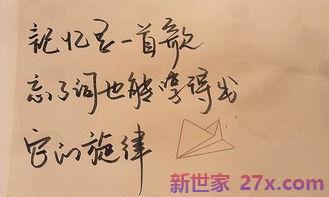 记忆是一首歌
忘了词也能得出
它的旋律
新世家 27x.com